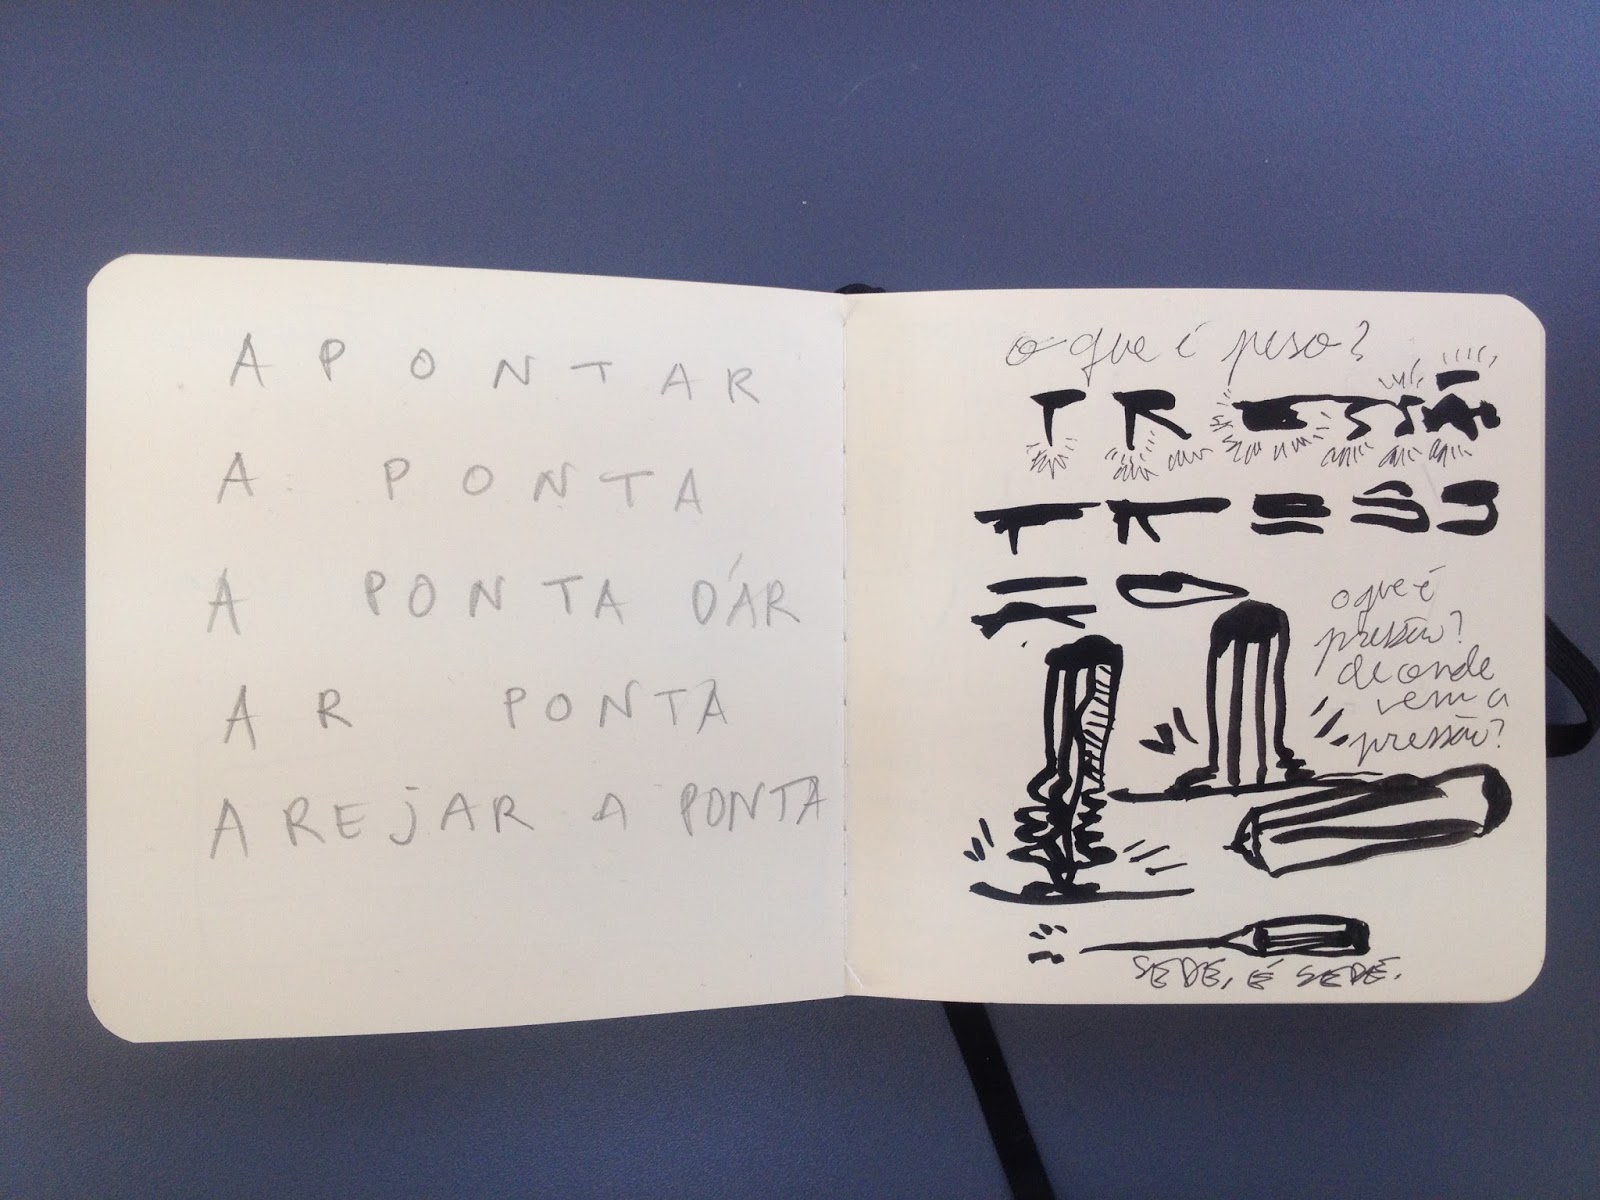 A PONTAR
A PONTA
A PONTA D'ÁR
AR PONTA
AREJAR A PONTA
o que é peso?
o que é
pressão?
de onde
vem a
pressão?
SEDE, É SEDE.